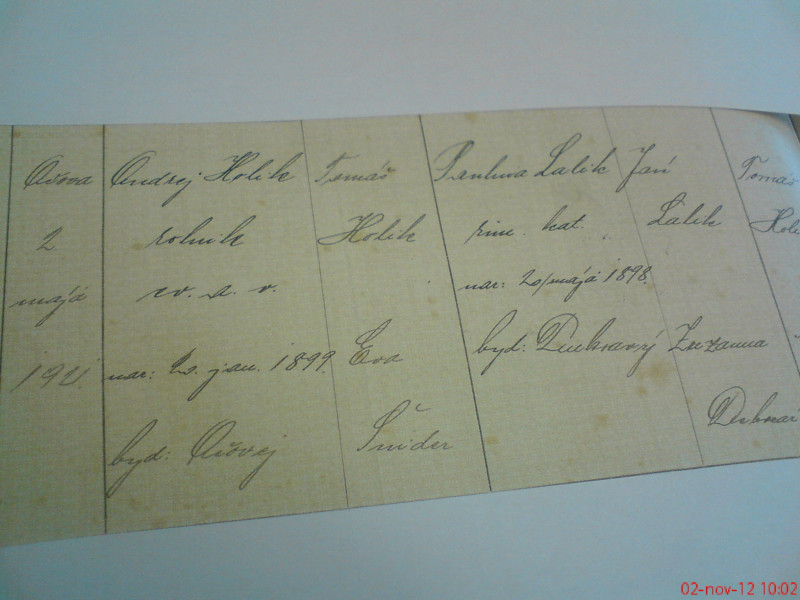 Očova
2
mája
192.
Ondrej Holik
rolnik
ev. a. v.
nar: 2. jan. 1899.
byd: Očovej
Tomáš
Holik
Eva
Šnider
Paulina Lalik
rim. kat.
nar: 20/mája 1898.
byd: Dubravý
Ján
Lalik
Zuzanna
Dubrav
Tomáš
Holi
02-nov-12 10:02